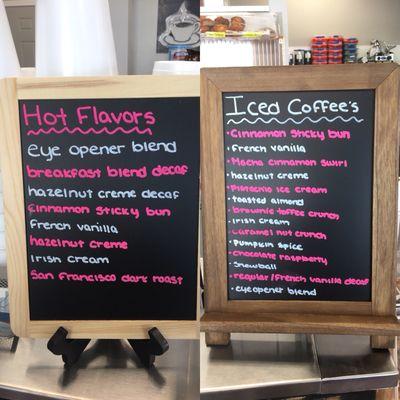 Hot Flavors
eye opener blend
breakfast blend decaf
hazelnut creme decaf
Cinnamon Sticky bun
french vanilla
hazelnut creme
Irish cream
San Francisco dark roast
Iced Coffee's
• Cinnamon Sticky bun
• french vanilla
• Mocha cinnamon swirl
• hazelnut creme
• Pistachio ice cream
• toasted almond
• brownie toffee crunch
• Irish cream
• Caramel nut crunch
• Pumpkin spice
• Chocolate raspberry
• Snowball
• regular/french vanilla decaf
• eye opener blend